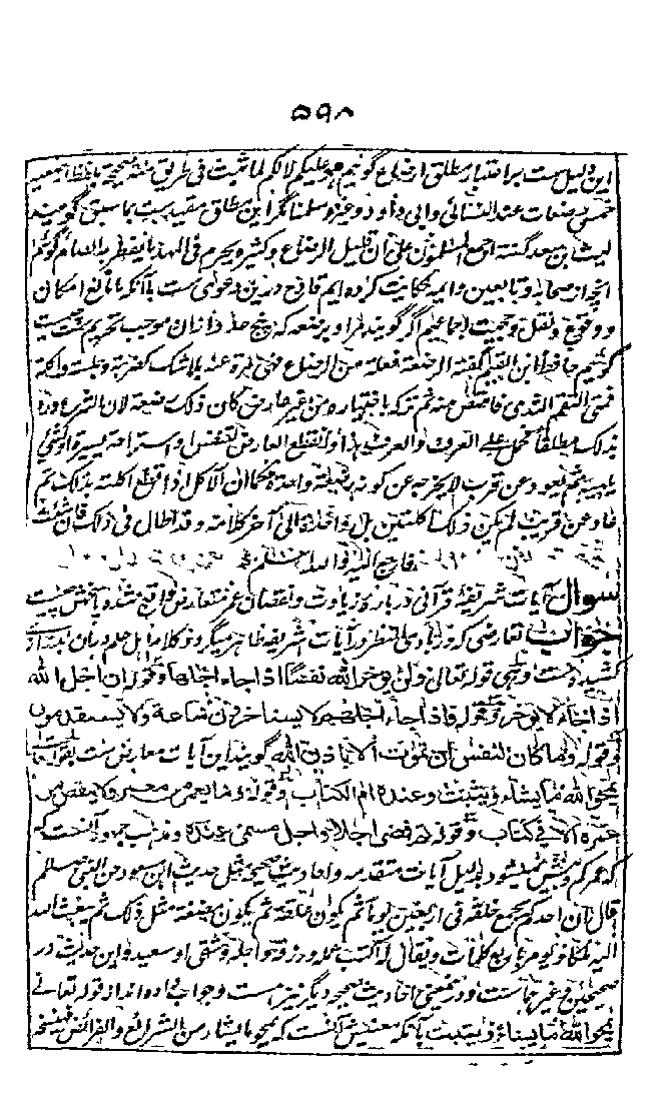 ۵۹۸
این دلیل ست بر اعتبار مطلق ارضاع گوئیم هو علیکم لا لکم لما ثبت فی طریق
خمس رضعات عند النسائی وابی داود وغیره سلمنا مگر این مطلق مقید ست بما سبق گویند
لیث بن سعد گفته اجمع المسلمون علی ان قلیل الرضاع وکثیره یحرم فی المهد ما یفطر به الصائم گوئیم
انچه از صحابه و تابعین و ایمه حکایت کرده ایم قادح درین دعوی ست با آنکه مانع امکان
و وقوع ونقل وحجیت اجماعیم اگر گویند
گوئیم حافظ ابن القیم گفته الرضعة فعلة من الرضاع فهی مرة منه بلا شک کضربة وجلسة واکلة
فمتی التقم الثدی فامتص منه ثم ترکه باختیاره من غیر عارض کان ذلک رضعة لان الشرع ورد
بذلک مطلقا فحمل علی العرف والعرف هذا والقطع العارض لتنفس او استراحة یسیرة او لشئ
یلهیه ثم یعود عن قرب لا یخرجه عن کونه رضعة واحدة کما ان الآکل اذا قطع اکلته بذلک ثم
عاد عن قریب لم یکن ذلک اکلتین بل واحدة الی آخر کلامه وقد اطال فی ذلک فان شئت
فارجع الیه والله اعلم
سوال آیات شریفهٔ قرآنی در بارهٔ زیادت ونقصان عمر متعارض واقع شده پاسخش چیست
جواب تعارضی که در بادی النظر در آیات شریفه ظاهر میگردد کلام اهل علم بران
کشیده ست وهی قوله تعالی ولن یؤخر الله نفسا اذا جاء اجلها وقوله ان اجل الله
اذا جاء لا یؤخر وقوله فاذا جاء اجلهم لا یستأخرون ساعة ولا یستقدمون
وقوله وما کان لنفس ان تموت الا باذن الله گویند این آیات معارض ست
یمحو الله ما یشاء ویثبت وعنده ام الکتاب وقوله وما یعمر من معمر ولا ینقص من
عمره الا فی کتاب وقوله ثم قضی اجلا واجل مسمی عنده ومذهب جمهور آنست که
که عمر کم وبیش نمیشود بدلیل آیات متقدمه واحادیث صحیحه مثل حدیث ابن مسعود عن النبی صللم
قال ان احدکم یجمع خلقه فی اربعین یوما ثم یکون علقة ثم یکون مضغة مثل ذلک ثم یبعث الله
الیه ملکا فیؤمر باربع کلمات ویقال له اکتب عمله ورزقه واجله وشقی او سعید واین حدیث در
صحیحین وغیرهماست ودرین معنی احادیث صحیحه دیگر نیز هست وجواب داده اند از قوله تعالی
یمحو الله ما یشاء ویثبت بآنکه معنیش آنست که یمحو ما یشاء من الشرائع والفرائض فینسخه